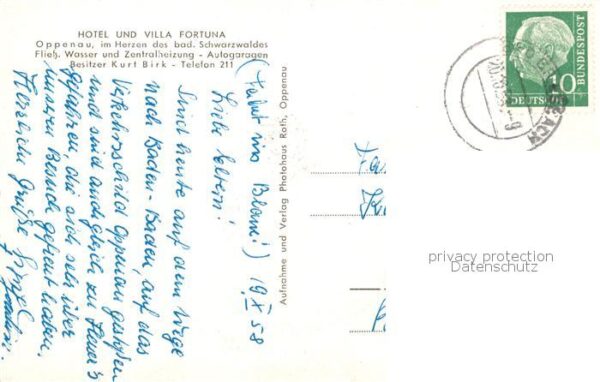 HOTEL UND VILLA FORTUNA
Oppenau, im Herzen des bad. Schwarzwaldes
Fließ. Wasser und Zentralheizung - Autogaragen
Besitzer Kurt Birk - Telefon 211
(Fahrt ins Blaue!) 19. X 58
Liebe Eltern!
Sind heute auf dem Wege
nach Baden-Baden, auf das
Verkehrsschild Oppenau gestoßen
und sind auch gleich zu
gefahren, die sich sehr über
unseren Besuch gefreut haben.
Herzliche Grüße
Aufnahme und Verlag Photohaus Roth, Oppenau
10
DEUTSCHE
BUNDESPOST
privacy protection
Datenschutz